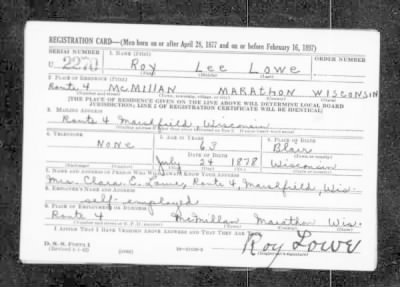 REGISTRATION CARD—(Men born on or after April 28, 1877 and on or before February 16, 1897)
SERIAL NUMBER 1. NAME (Print) ORDER NUMBER
U 2270 ROY LEE LOWE
(First) (Middle) (Last)
2. PLACE OF RESIDENCE (Print)
Route 4 McMILLAN MARATHON WISCONSIN
(Number and street) (Town, township, village, or city) (County) (State)
[THE PLACE OF RESIDENCE GIVEN ON THE LINE ABOVE WILL DETERMINE LOCAL BOARD
JURISDICTION; LINE 2 OF REGISTRATION CERTIFICATE WILL BE IDENTICAL]
3. MAILING ADDRESS
Route 4 Marshfield, Wisconsin
4. TELEPHONE 5. AGE IN YEARS 6. PLACE OF BIRTH
None 63 Blair
DATE OF BIRTH (Town or county)
July 24 1878 Wisconsin
(Exchange) (Number) (Mo.) (Day) (Yr.) (State or country)
7. NAME AND ADDRESS OF PERSON WHO WILL ALWAYS KNOW YOUR ADDRESS
Mrs. Clara C. Lowe, Route 4, Marshfield, Wis.
8. EMPLOYER'S NAME AND ADDRESS
self-employed
9. PLACE OF EMPLOYMENT OR BUSINESS
Route 4 McMillan Marathon Wis.
(Number and street or R. F. D. number) (Town) (County) (State)
I AFFIRM THAT I HAVE VERIFIED ABOVE ANSWERS AND THAT THEY ARE TRUE.
D. S. S. Form 1
(Revised 4-1-42) (over)
Roy Lowe
(Registrant's signature)